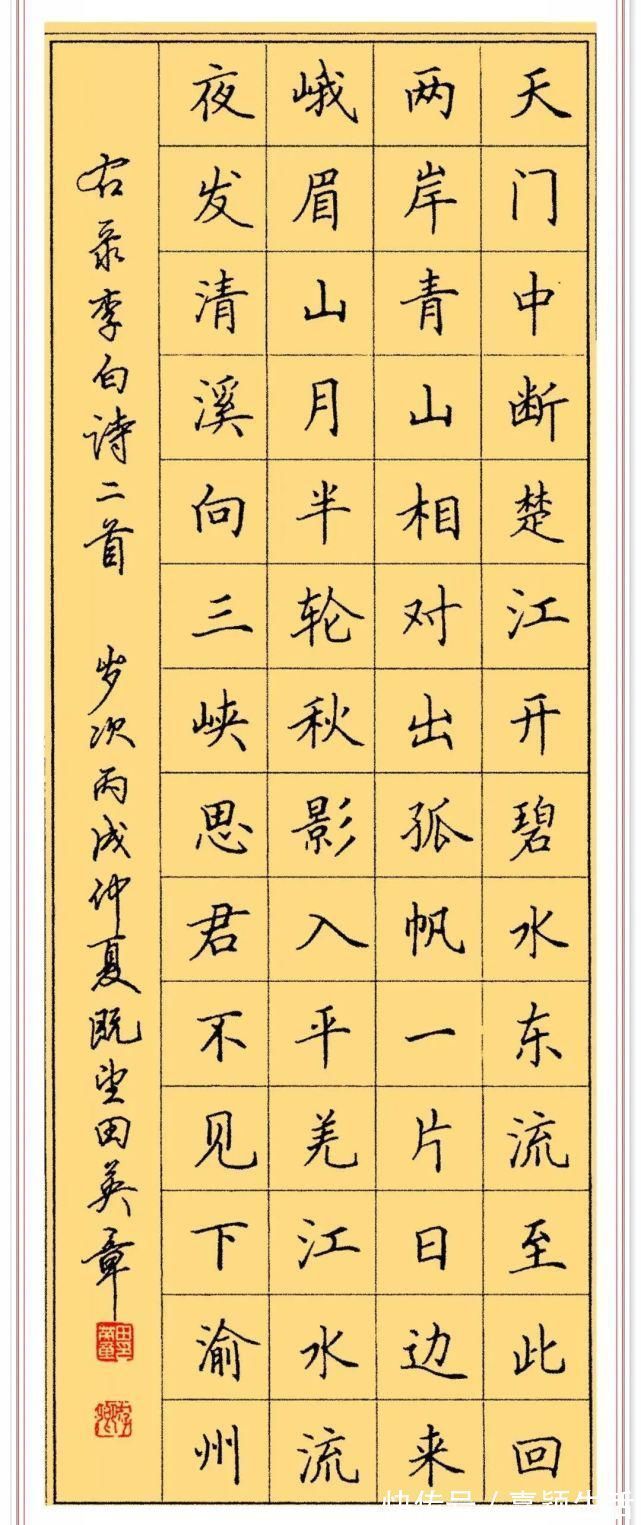 天门中断楚江开碧水东流至此回
两岸青山相对出孤帆一片日边来
峨眉山月半轮秋影入平羌江水流
夜发清溪向三峡思君不见下渝州
右录李白诗二首 岁次丙戌仲夏既望田英章
快传号/喜颖生活